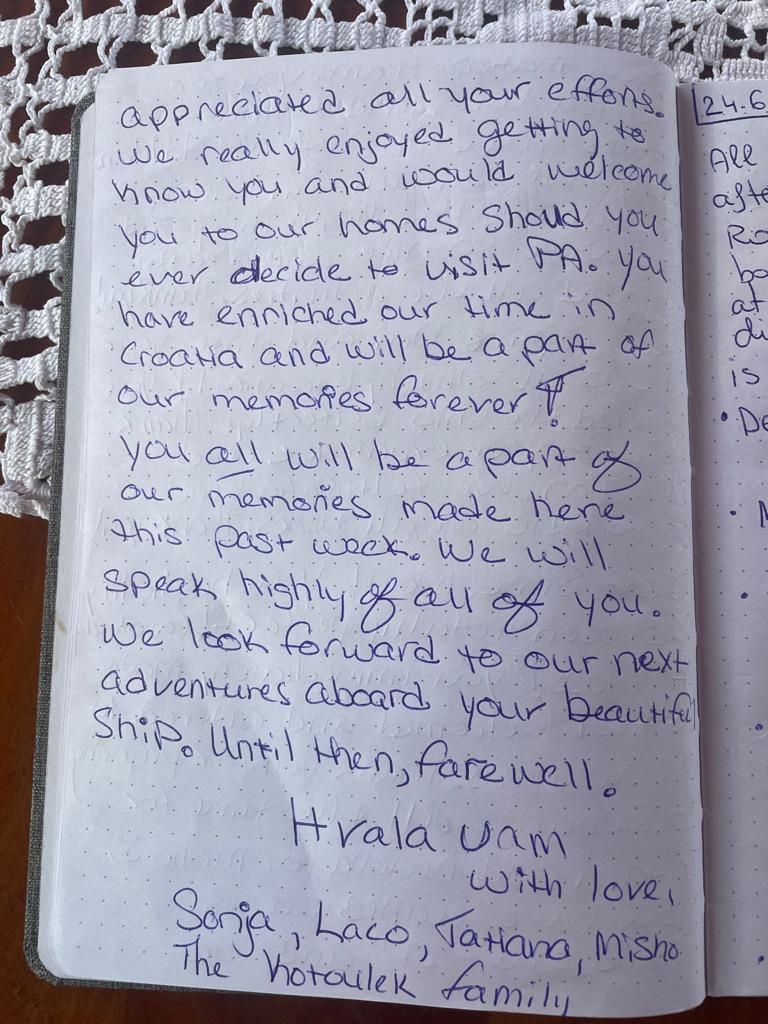 appreciated all your efforts.
We really enjoyed getting to
know you and would welcome
you to our homes should you
ever decide to visit PA. You
have enriched our time in
Croatia and will be a part of
our memories forever!
You all will be a part of
our memories made here
this past week. We will
speak highly of all of you.
We look forward to our next
adventures aboard your beautiful
Ship. Until then, farewell.
Hvala vam
with love,
Sonja, Laco, Tatiana, Misho
The family
24.6
All
is